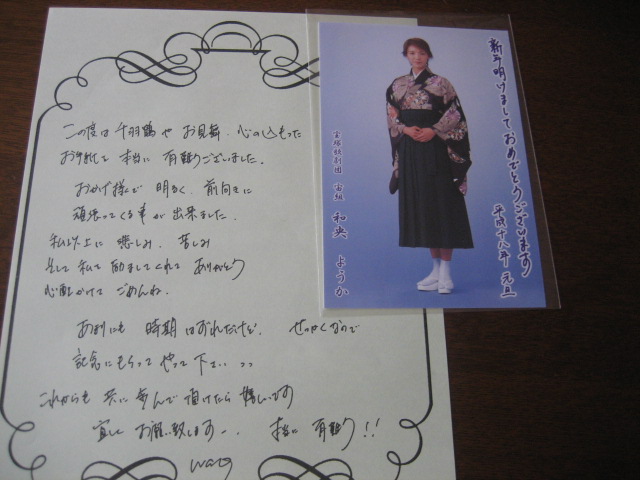 この度は千羽鶴やお見舞、心の込もった
お手紙で本当に有難うございました。
おかげ様で明るく、前向きに
頑張ってくる事が出来ました。
私以上に悲しみ、苦しみ
そして私を励ましてくれてありがとう
心配かけてごめんね。
あまりにも時期はずれだけど、せっかくなので
記念にもらってやって下さい
これからも共に歩んで頂けたら嬉しいです
宜しくお願い致します 本当に有難う!!
新年明けましておめでとうございます
平成十八年 元旦
宝塚歌劇団 宙組 和央ようか